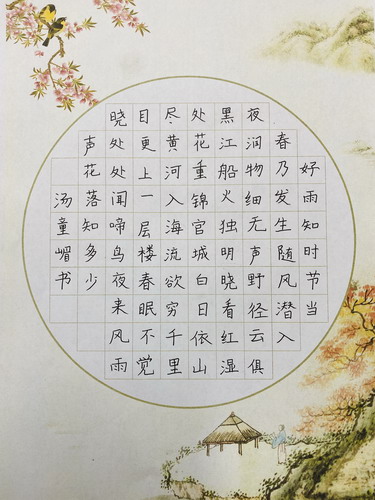 好雨知时节当
春乃发生随风潜入
夜润物细无声野径云俱
黑江船火独明晓看红湿
处花重锦官城白日依山
尽黄河入海流欲穷千里
目更上一层楼春眠不觉
晓处处闻啼鸟夜来风雨
声花落知多少
汤童嵋书